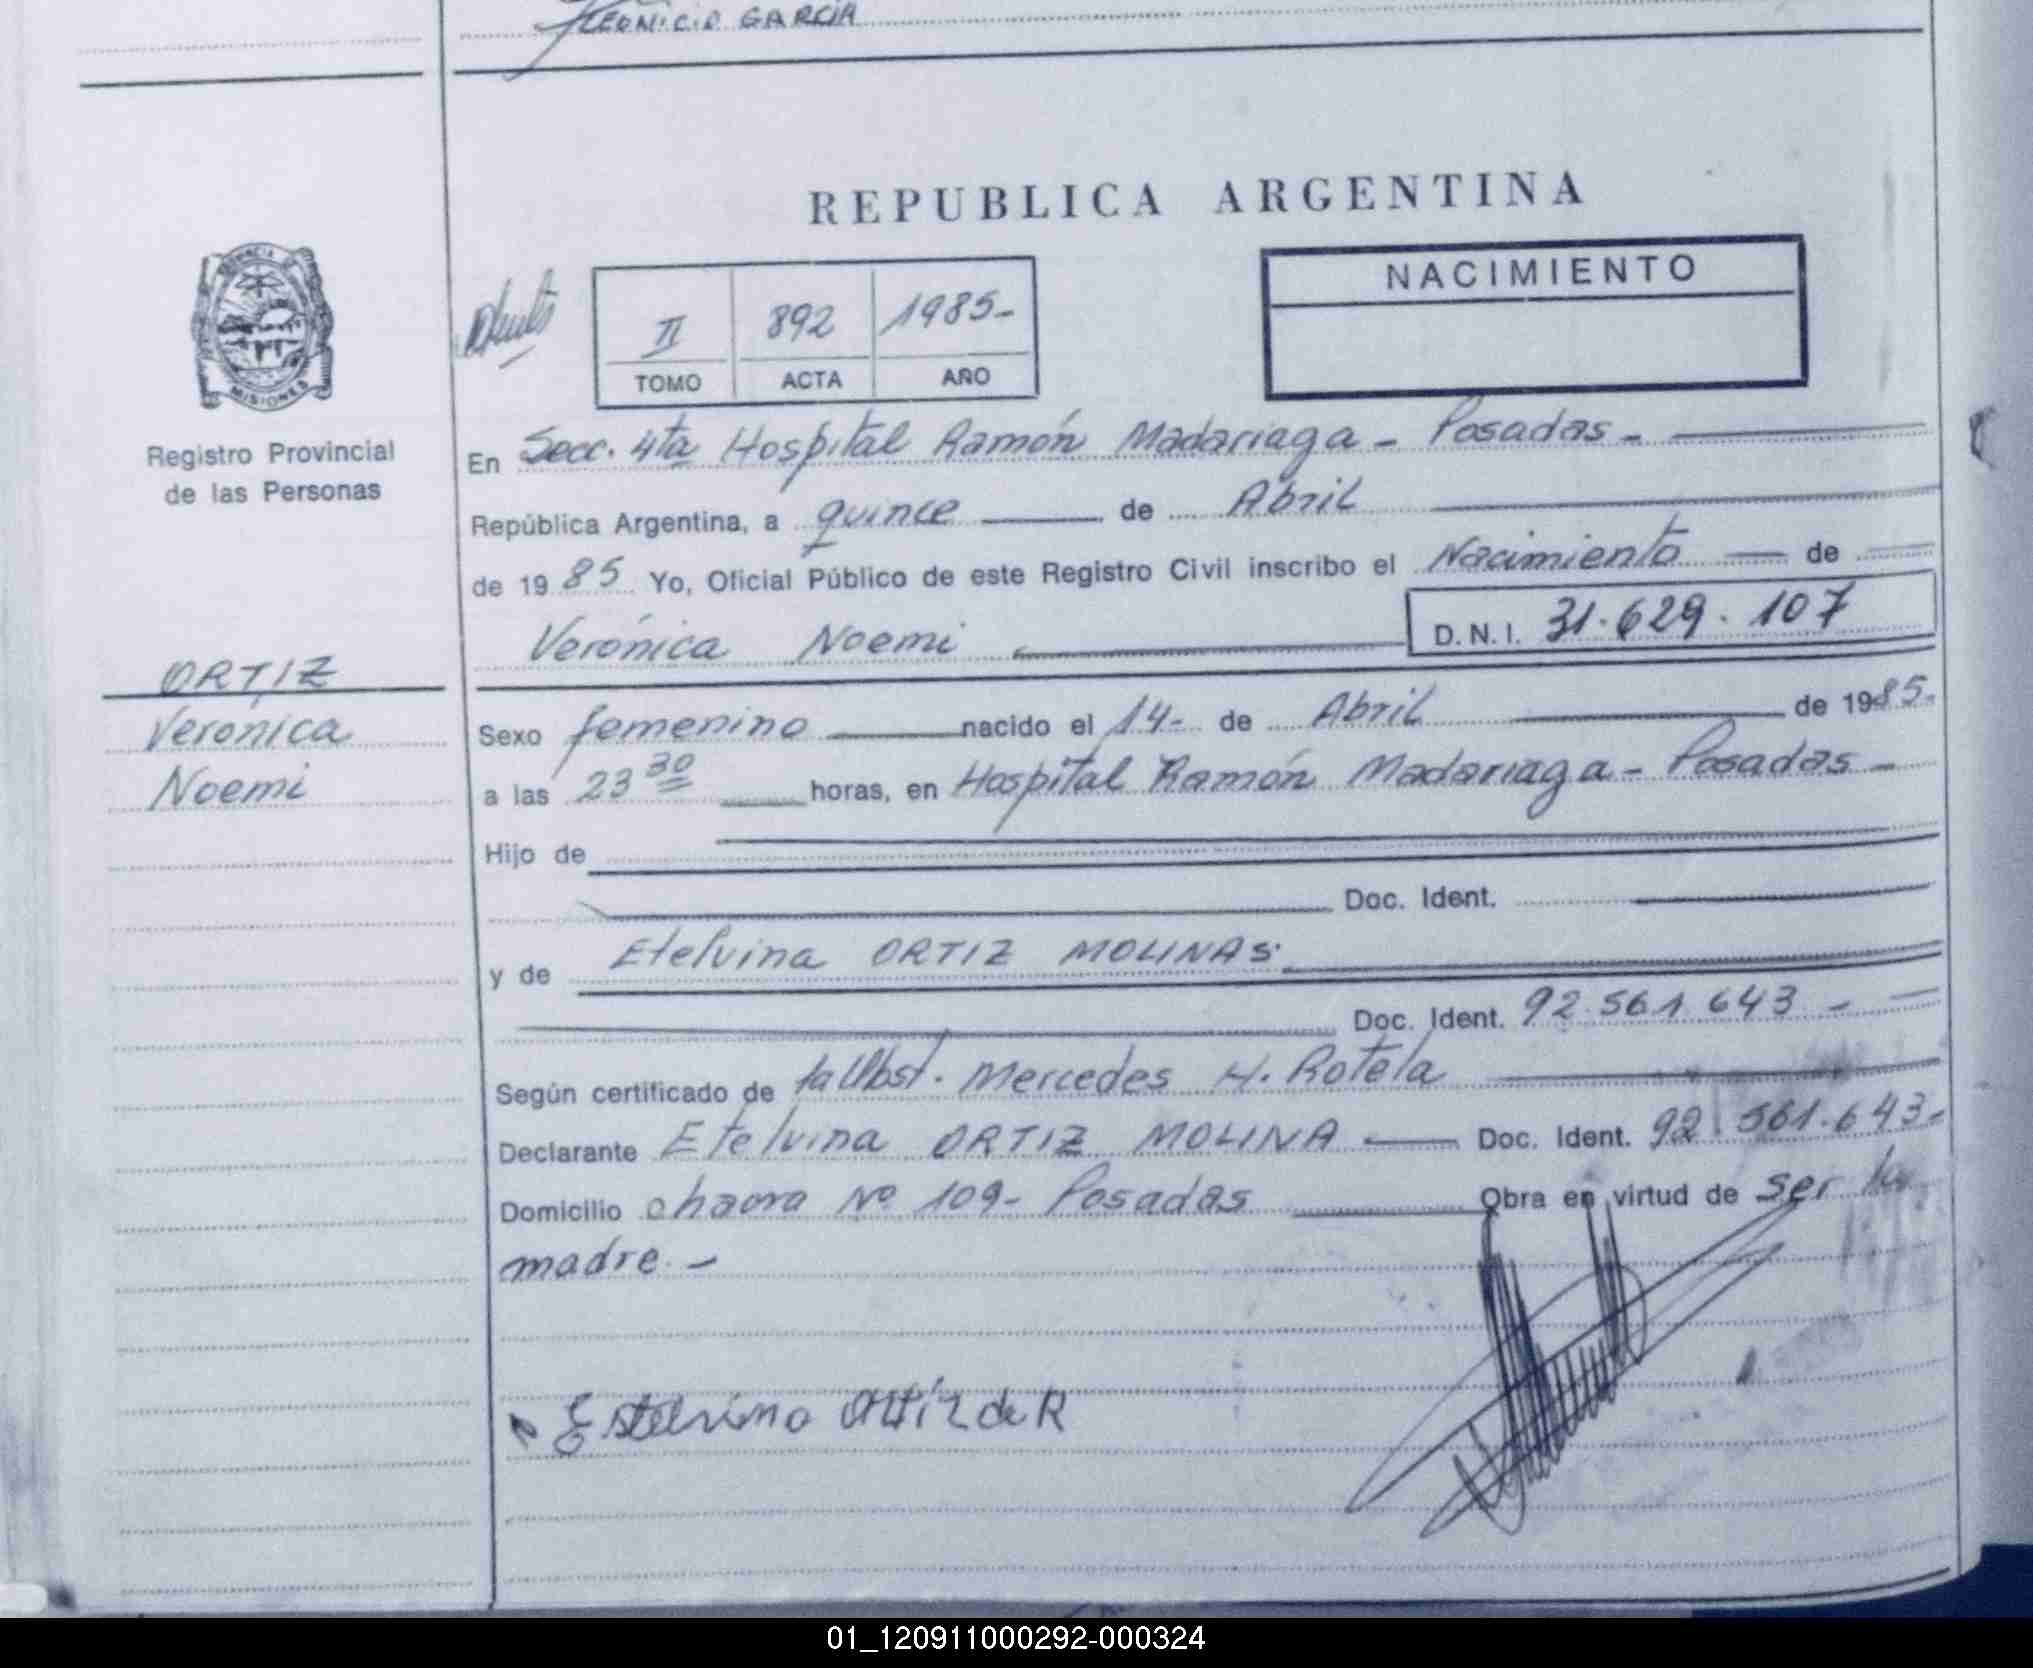 LEONICIO GARCIA
REPUBLICA ARGENTINA
PROVINCIA DE
MISIONES
Registro Provincial
de las Personas
II 892 1985-
TOMO ACTA AÑO
NACIMIENTO
En Secc. 4ta Hospital Ramón Madariaga - Posadas -
República Argentina, a quince de Abril
de 19 85 Yo, Oficial Público de este Registro Civil inscribo el Nacimiento de
Verónica Noemi D.N.I. 31.629.107
ORTIZ
Verónica
Noemi
Sexo femenino nacido el 14- de Abril de 1985-
a las 23 30 horas, en Hospital Ramón Madariaga - Posadas -
Hijo de
Doc. Ident.
y de Etelvina ORTIZ MOLINAS
Doc. Ident. 92.561.643 -
Según certificado de la Obst. Mercedes H. Rotela
Declarante Etelvina ORTIZ MOLINA Doc. Ident. 92.561.643-
Domicilio chacra Nº 109- Posadas Obra en virtud de ser la
madre. -
Estelvina Ortiz de R
01_120911000292-000324